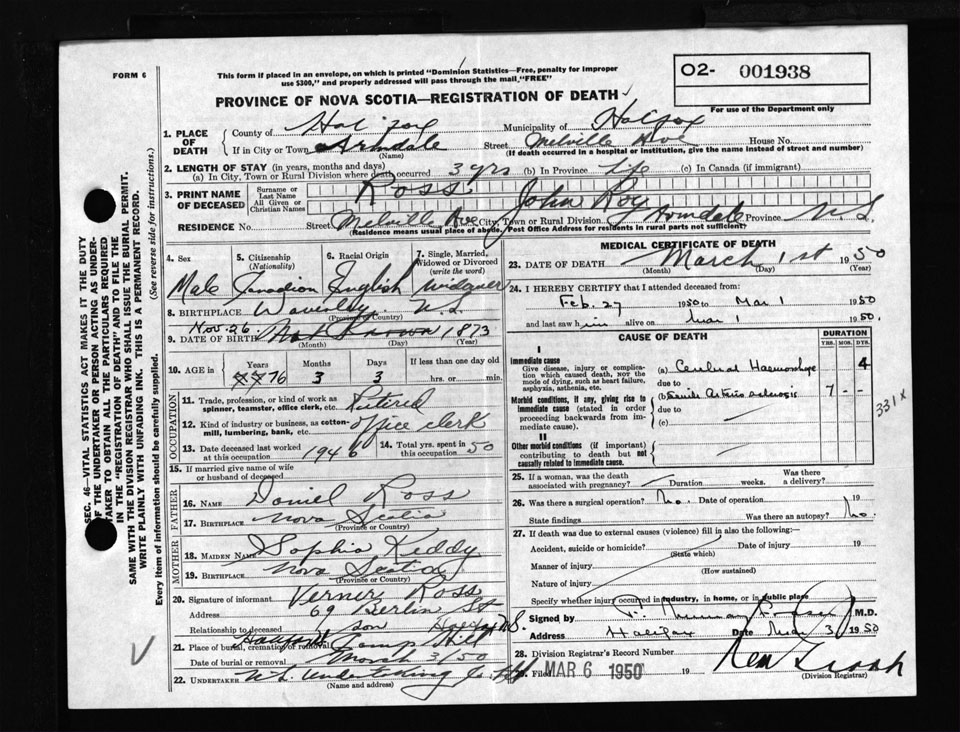 FORM 6
This form if placed in an envelope, on which is printed "Dominion Statistics—Free, penalty for improper
use $300," and properly addressed will pass through the mail, "FREE"
O2- 001938
For use of the Department only
PROVINCE OF NOVA SCOTIA—REGISTRATION OF DEATH
1. PLACE OF DEATH
County of Halifax Municipality of Halifax
If in City or Town Armdale Street Melville Ave House No.
(Name) (If death occurred in a hospital or institution, give the name instead of street and number)
2. LENGTH OF STAY (in years, months and days)
(a) In City, Town or Rural Division where death occurred 3 yrs (b) In Province Life (c) In Canada (if immigrant)
3. PRINT NAME OF DECEASED
Surname or Last Name Ross
All Given or Christian Names John Roy
RESIDENCE No. Street Melville Ave City, Town or Rural Division Armdale Province N.S.
(Residence means usual place of abode. Post Office Address for residents in rural parts not sufficient)
4. Sex
Male
5. Citizenship
(Nationality)
Canadian
6. Racial Origin
English
7. Single, Married, Widowed or Divorced
(write the word)
Widower
8. BIRTHPLACE Waverley N.S.
(Province or Country)
9. DATE OF BIRTH Nov. 26 Not Known 1873
(Month) (Day) (Year)
10. AGE in
Years Months Days If less than one day old
76 3 3 hrs. or min.
OCCUPATION
11. Trade, profession, or kind of work as
spinner, teamster, office clerk, etc. Retired
12. Kind of industry or business, as cotton-
mill, lumbering, bank, etc. office clerk
13. Date deceased last worked
at this occupation 1946
14. Total yrs. spent in
this occupation 50
15. If married give name of wife
or husband of deceased
FATHER
16. NAME Daniel Ross
17. BIRTHPLACE Nova Scotia
(Province or Country)
MOTHER
18. MAIDEN NAME Sophia Keddy
19. BIRTHPLACE Nova Scotia
(Province or Country)
20. Signature of informant Verner Ross
Address 69 Berlin St
Relationship to deceased son Halifax N.S.
21. Place of burial, cremation or removal Halifax Camp Hill
Date of burial or removal March 3/50
22. UNDERTAKER N.S. Undertaking Co.
(Name and address)
MEDICAL CERTIFICATE OF DEATH
23. DATE OF DEATH March 1st 1950
(Month) (Day) (Year)
24. I HEREBY CERTIFY that I attended deceased from:
Feb. 27 1950 to Mar 1 1950
and last saw him alive on Mar 1 1950.
CAUSE OF DEATH
DURATION
YRS. MOS. DYS.
I
Immediate cause
Give disease, injury or complica-
tion which caused death, NOT the
mode of dying, such as heart failure,
asphyxia, asthenia, etc.
(a) Cerebral Haemorrhage 4
due to
Morbid conditions, if any, giving rise to
immediate cause (stated in order
proceeding backwards from im-
mediate cause).
(b) Senile Arterio sclerosis 7 - -
due to
(c)
331X
II
Other morbid conditions (if important)
contributing to death but not
causally related to immediate cause.
25. If a woman, was the death
associated with pregnancy? Duration weeks. Was there
a delivery?
26. Was there a surgical operation? No. Date of operation 19
State findings Was there an autopsy? No.
27. If death was due to external causes (violence) fill in also the following:—
Accident, suicide or homicide? Date of injury 19
(State which)
Manner of injury
(How sustained)
Nature of injury
Specify whether injury occurred in industry, in home, or in public place
Signed by M.D.
Address Halifax Date Mar 3 1950
28. Division Registrar's Record Number
29. Filed MAR 6 1950 19
(Division Registrar)
SEC. 46—VITAL STATISTICS ACT MAKES IT THE DUTY
OF THE UNDERTAKER OR PERSON ACTING AS UNDER-
TAKER TO OBTAIN ALL THE PARTICULARS REQUIRED
IN THE "REGISTRATION OF DEATH" AND TO FILE THE
SAME WITH THE DIVISION REGISTRAR WHO SHALL ISSUE THE BURIAL PERMIT.
WRITE PLAINLY WITH UNFADING INK. THIS IS A PERMANENT RECORD.
(See reverse side for instructions.)
Every item of information should be carefully supplied.